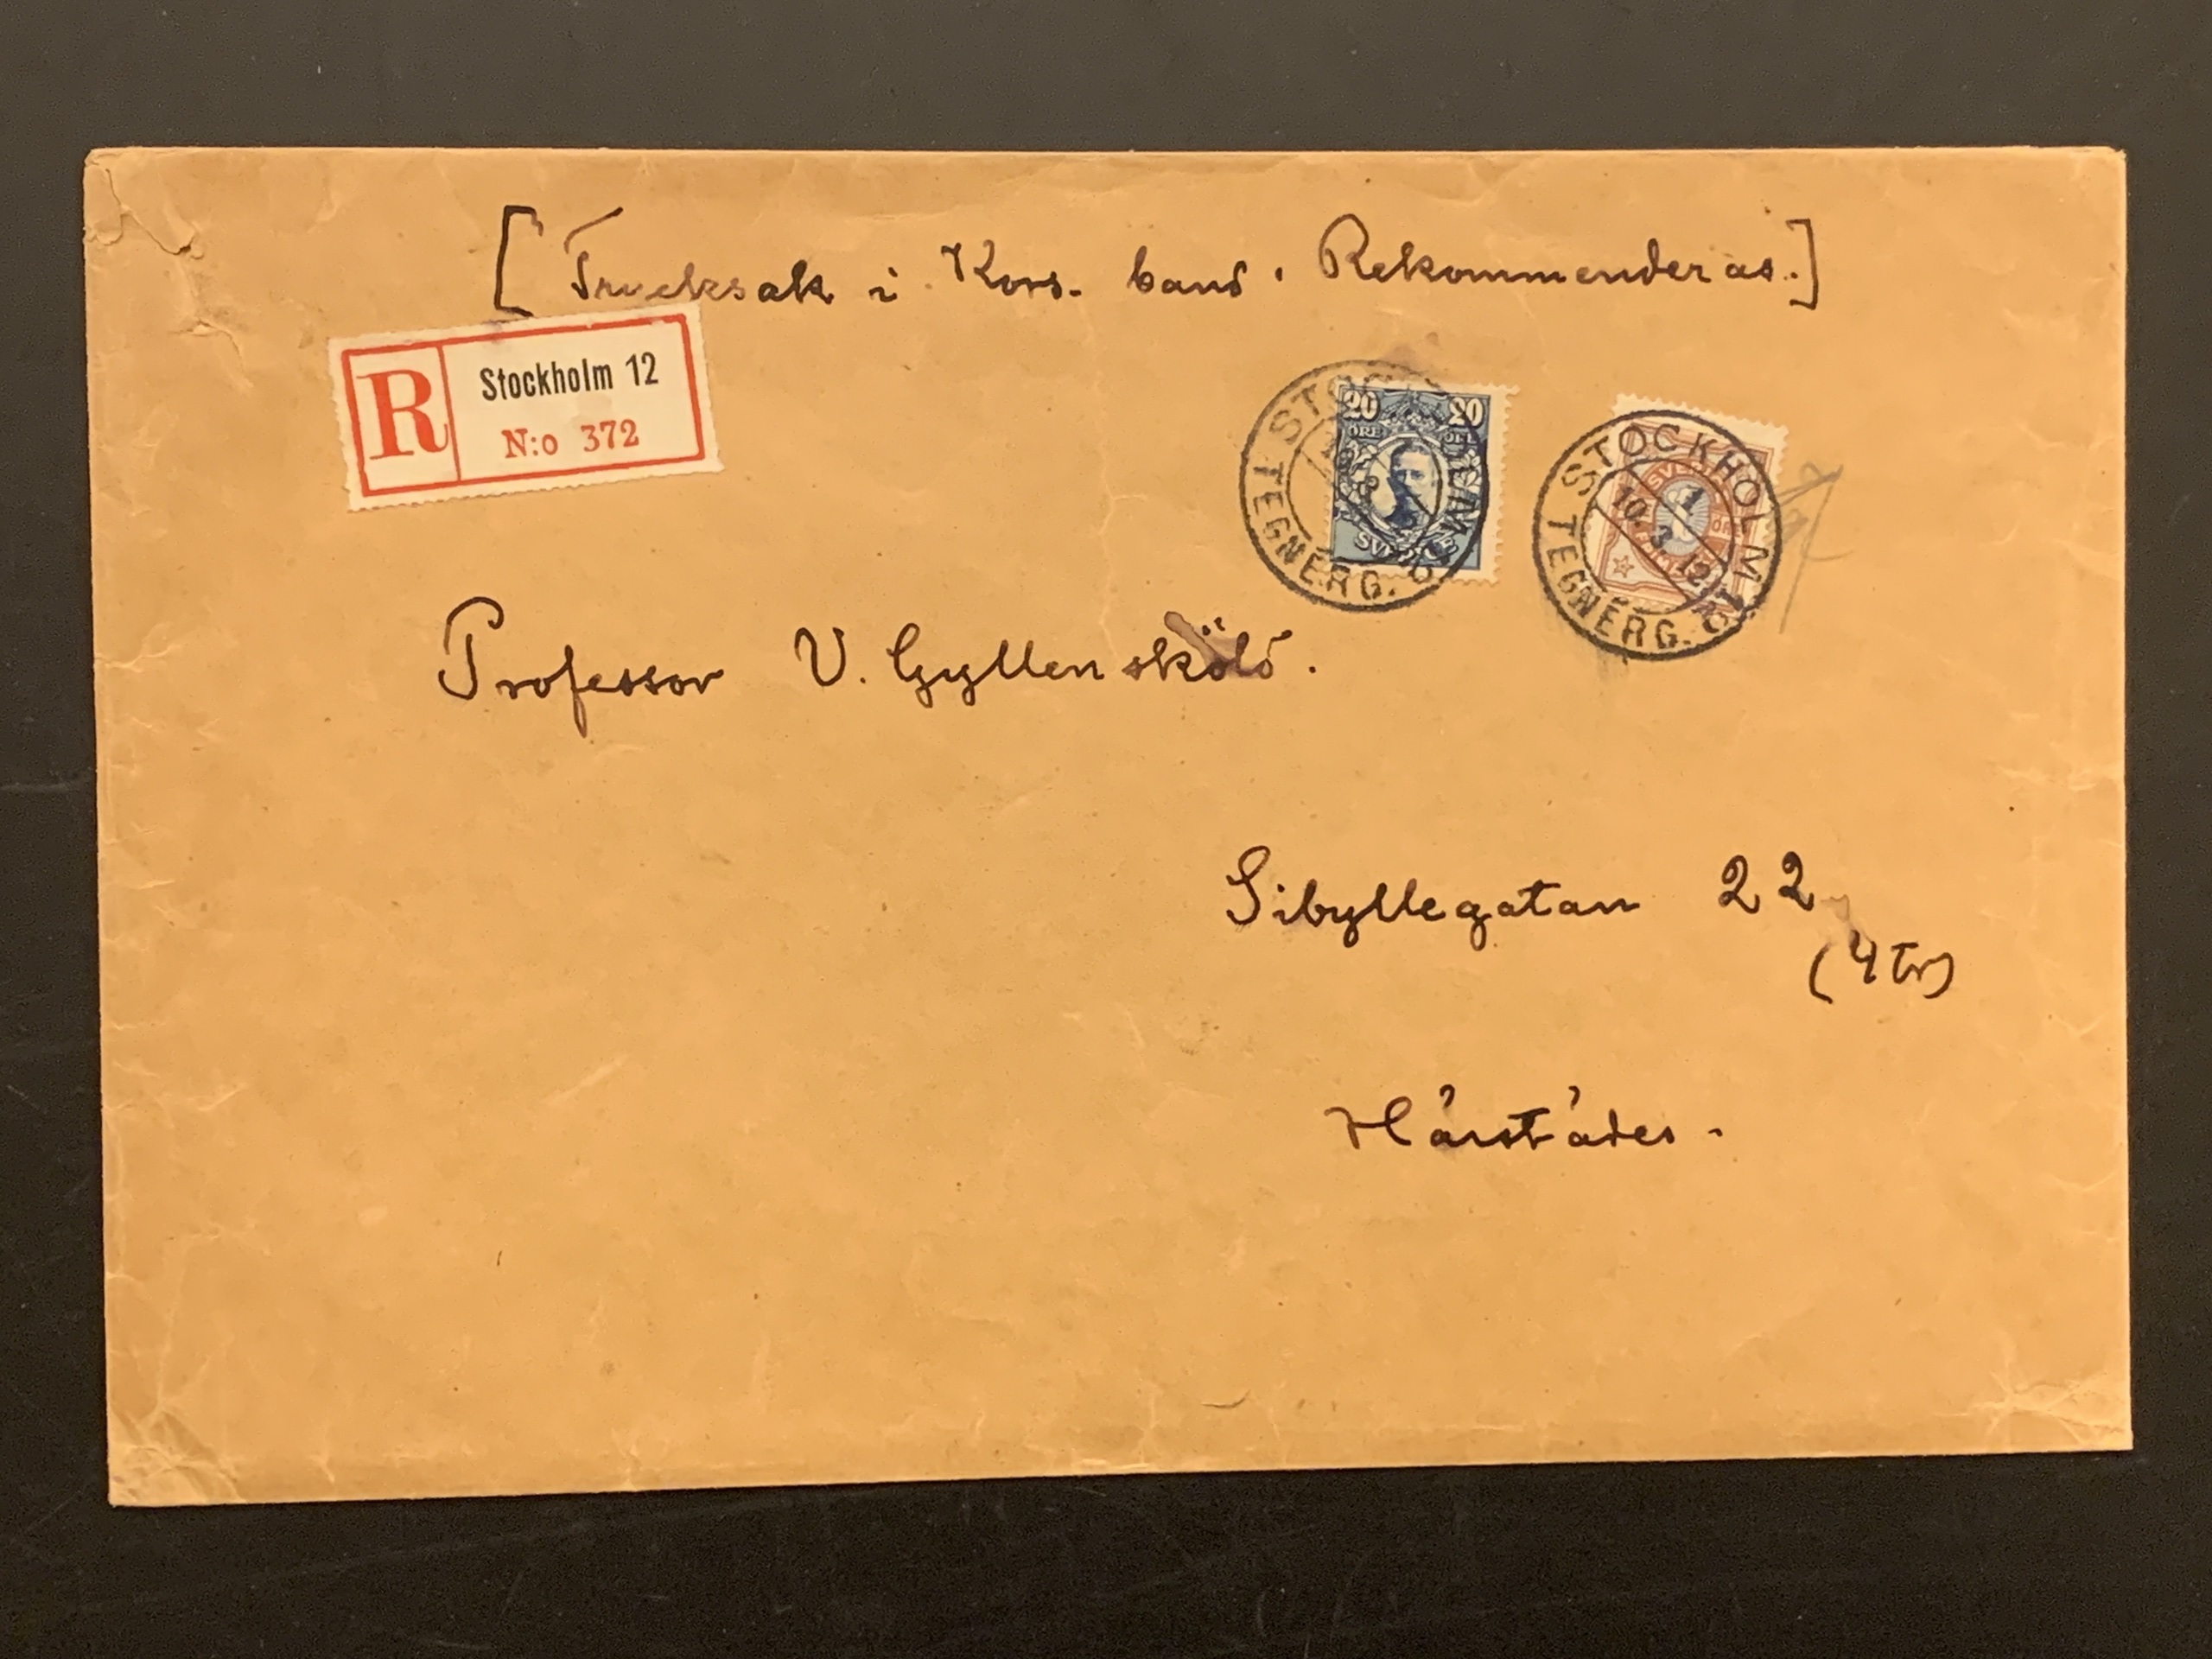 [Trycksak i Kors-band. Rekommenderas.]
R Stockholm 12
N:o 372
20 20
ÖRE ÖRE
SVERIGE
STOCKHOLM
TEGNÉRG. 6
STOCKHOLM
1
10. 3. 12
TEGNÉRG. 6
Professor V. Gyllensköld.
Sibyllegatan 22
(4 tr)
Härstädes.